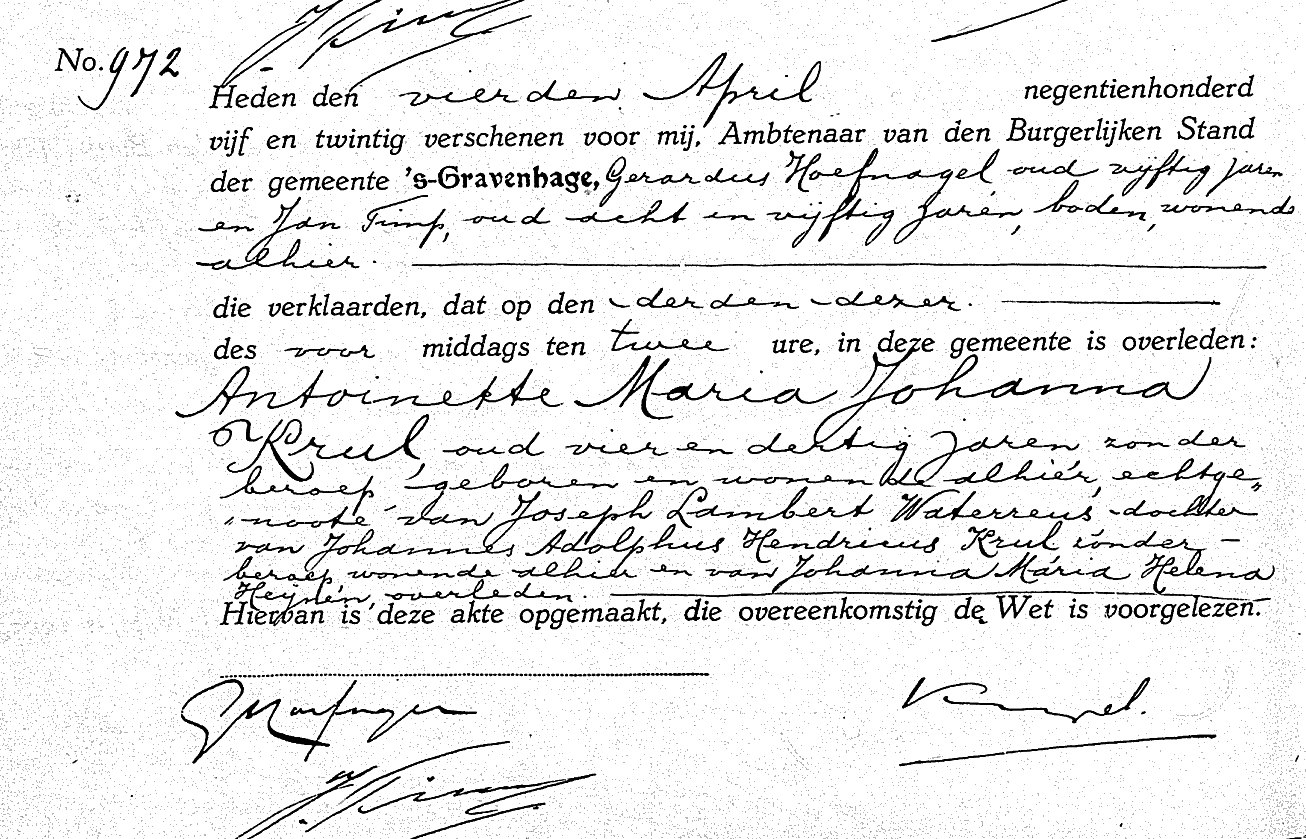 No. 972
Heden den vierden April negentienhonderd
vijf en twintig verschenen voor mij, Ambtenaar van den Burgerlijken Stand
der gemeente 's-Gravenhage, Gerardus Hoefnagel oud vijftig jaren
en Jan Timp, oud acht en vijftig jaren, boden, wonende
alhier.
die verklaarden, dat op den derden dezer.
des voor middags ten twee ure, in deze gemeente is overleden:
Antoinette Maria Johanna
Krul, oud vier en dertig jaren zonder
beroep geboren en wonende alhier, echtge„
„noote van Joseph Lambert Waterreus dochter
van Johannes Adolphus Hendricus Krul zonder –
beroep, wonende alhier en van Johanna Maria Helena
Heijnen, overleden.
Hiervan is deze akte opgemaakt, die overeenkomstig de Wet is voorgelezen.